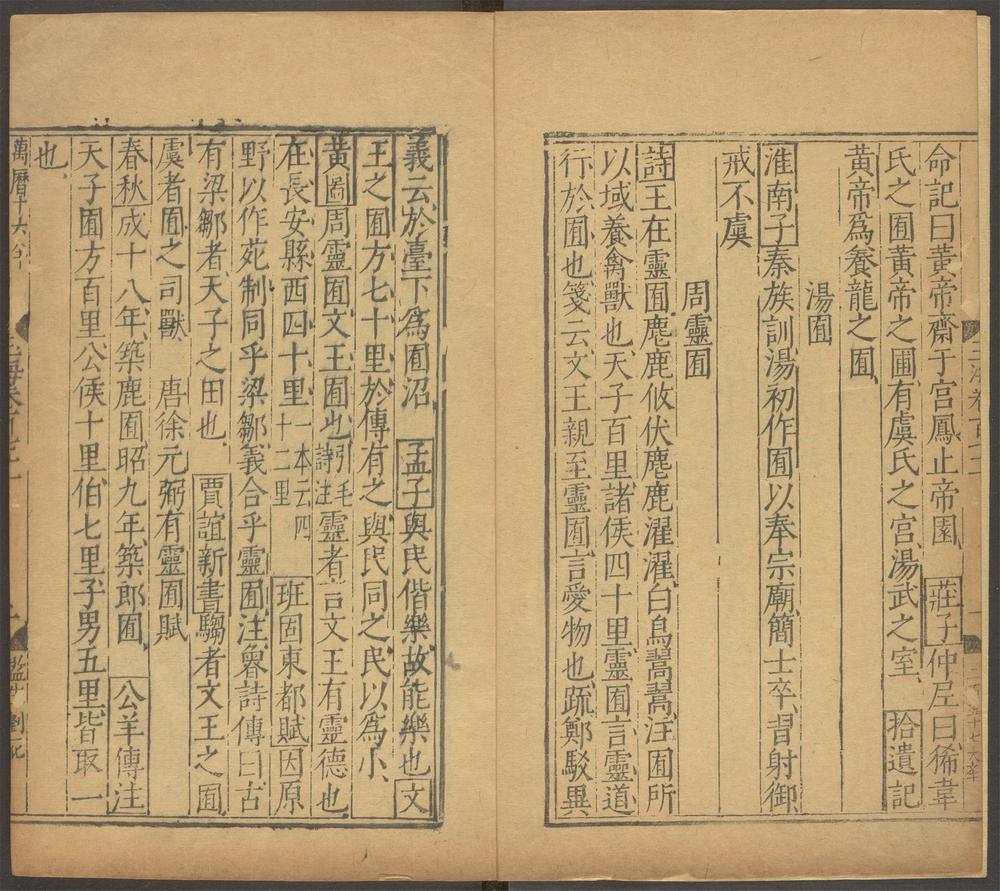 命記曰黃帝齋于宫鳳止帝園 莊子仲尼曰狶韋
氏之囿黃帝之圃有虞氏之宮湯武之室 拾遺記
黃帝爲養龍之囿
湯囿
淮南子泰族訓湯初作囿以奉宗廟簡士卒習射御
戒不虞
周靈囿
詩王在靈囿麀鹿攸伏麀鹿濯濯白鳥翯翯注囿所
以域養禽獸也天子百里諸侯四十里靈囿言靈道
行於囿也箋云文王親至靈囿言愛物也疏鄭駁異
義云於臺下爲囿沼 孟子與民偕樂故能樂也 文
王之囿方七十里於傳有之與民同之民以爲小
黃圖周靈囿文王囿也引毛詩注靈者言文王有靈德也
在長安縣西四十里一本云四十二里 班固東都賦因原
野以作苑制同乎梁鄒義合乎靈囿注魯詩傳曰古
有梁鄒者天子之田也 賈誼新書騶者文王之囿
虞者囿之司獸 唐徐元弼有靈囿賦
春秋成十八年築鹿囿昭九年築郎囿 公羊傳注
天子囿方百里公侯十里伯七里子男五里皆取一
也
萬曆十六年